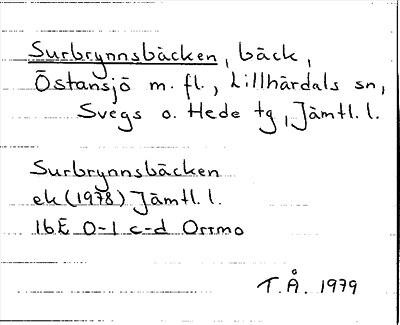 Surbrynnsbäcken, bäck,
Östansjö m. fl., Lillhärdals sn,
Svegs o. Hede tg, Jämtl. l.
Surbrynnsbäcken
ek (1978) Jämtl. l.
16E 0-1 c-d Orrmo
T.Å. 1979